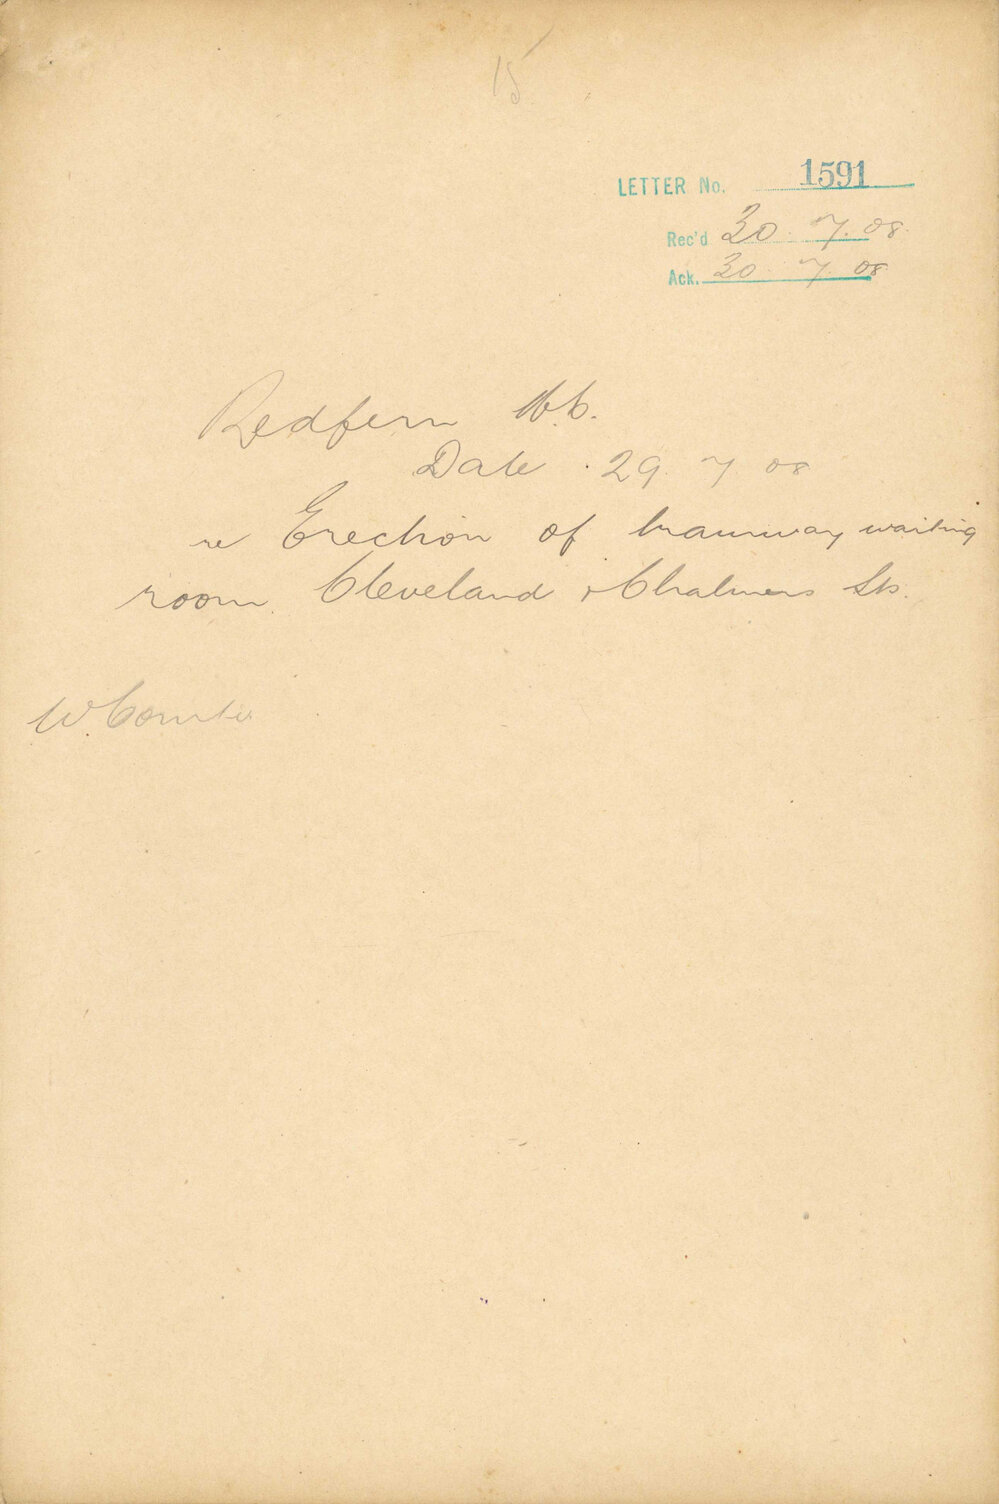 15
LETTER No. 1591
Rec'd 30. 7. 08.
Ack. 30. 7. 08
Redfern M.C.
Date . 29. 7 08
re Erection of tramway waiting
room. Cleveland & Chalmers Sts.
W. Comtee